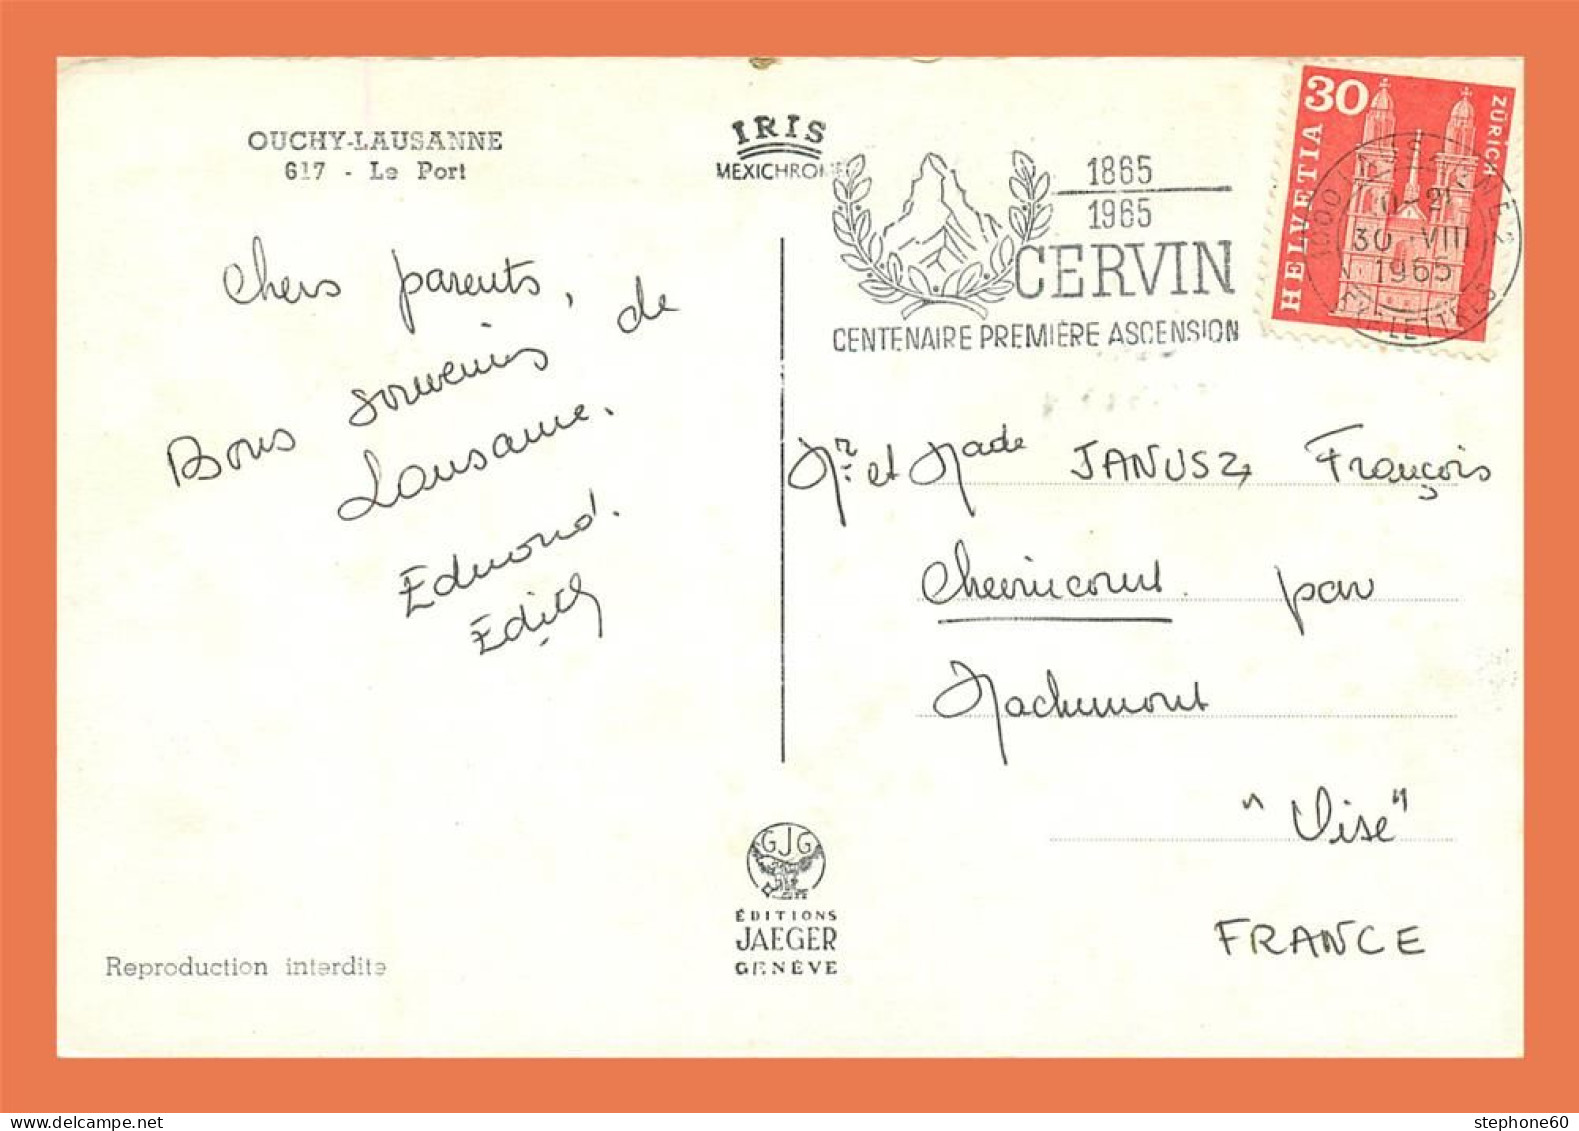 OUCHY-LAUSANNE
617 - Le Port
IRIS
MEXICHROME
Chers parents,
Bons souvenirs de
Lausanne.
Edmond.
Edith
Reproduction interdite
GJG
ÉDITIONS
JAEGER
GENÈVE
1865
1965
CERVIN
CENTENAIRE PREMIÈRE ASCENSION
30
HELVETIA
ZÜRICH
30 VIII
1965
Mr. et Made JANUSZ François
Chevincourt par
Machemont
"Oise"
FRANCE
stephone60